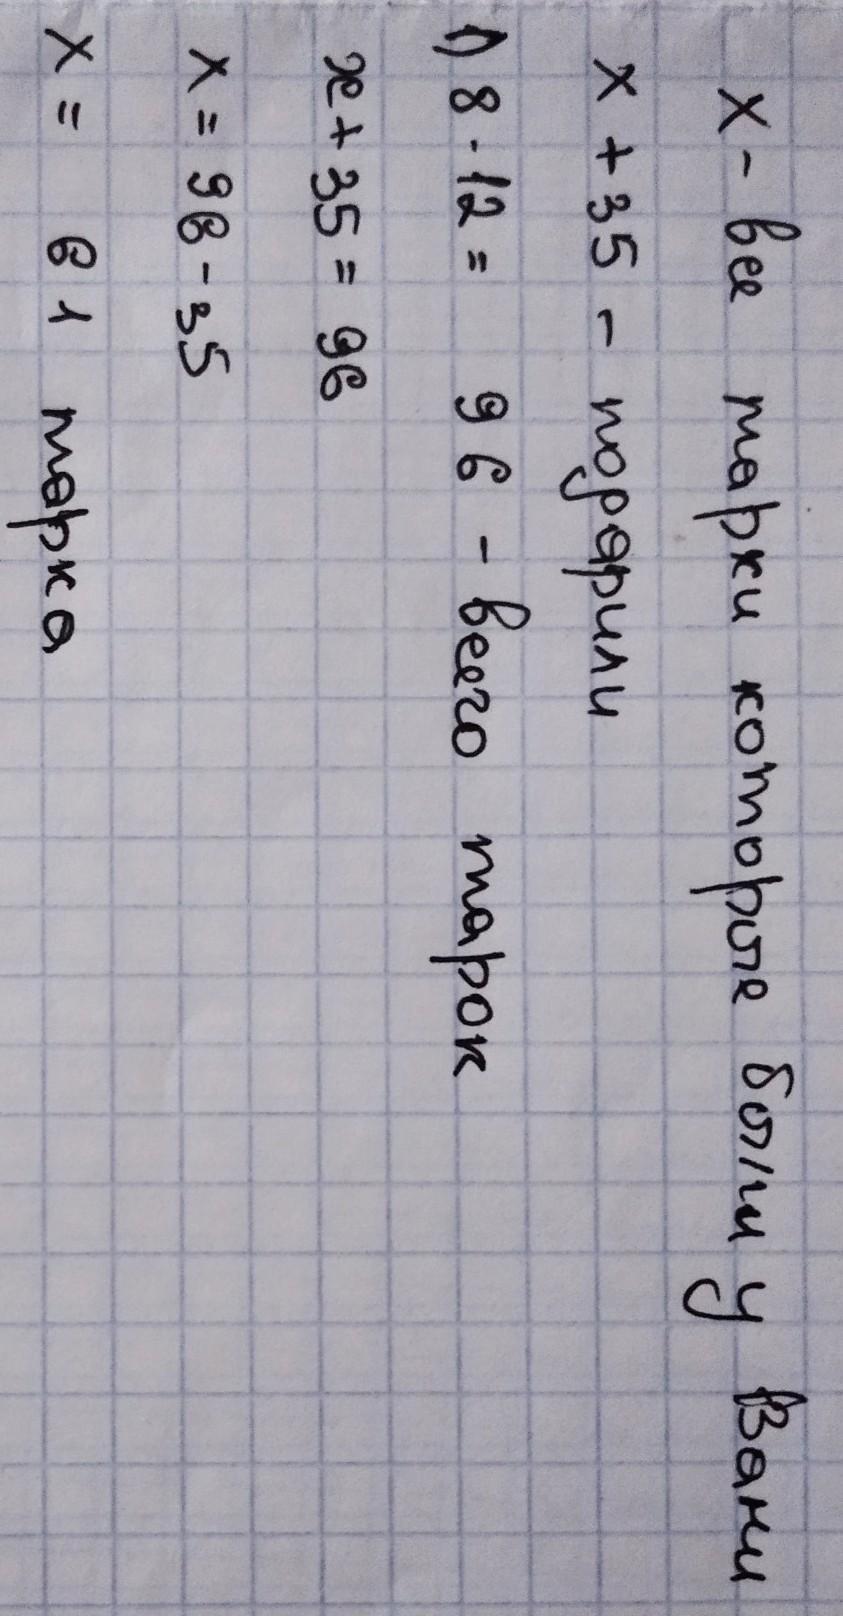 x - все марки которые были у Вани
x + 35 - подарили
1) 8 · 12 = 96 - всего марок
x + 35 = 96
x = 96 - 35
x = 61 марка